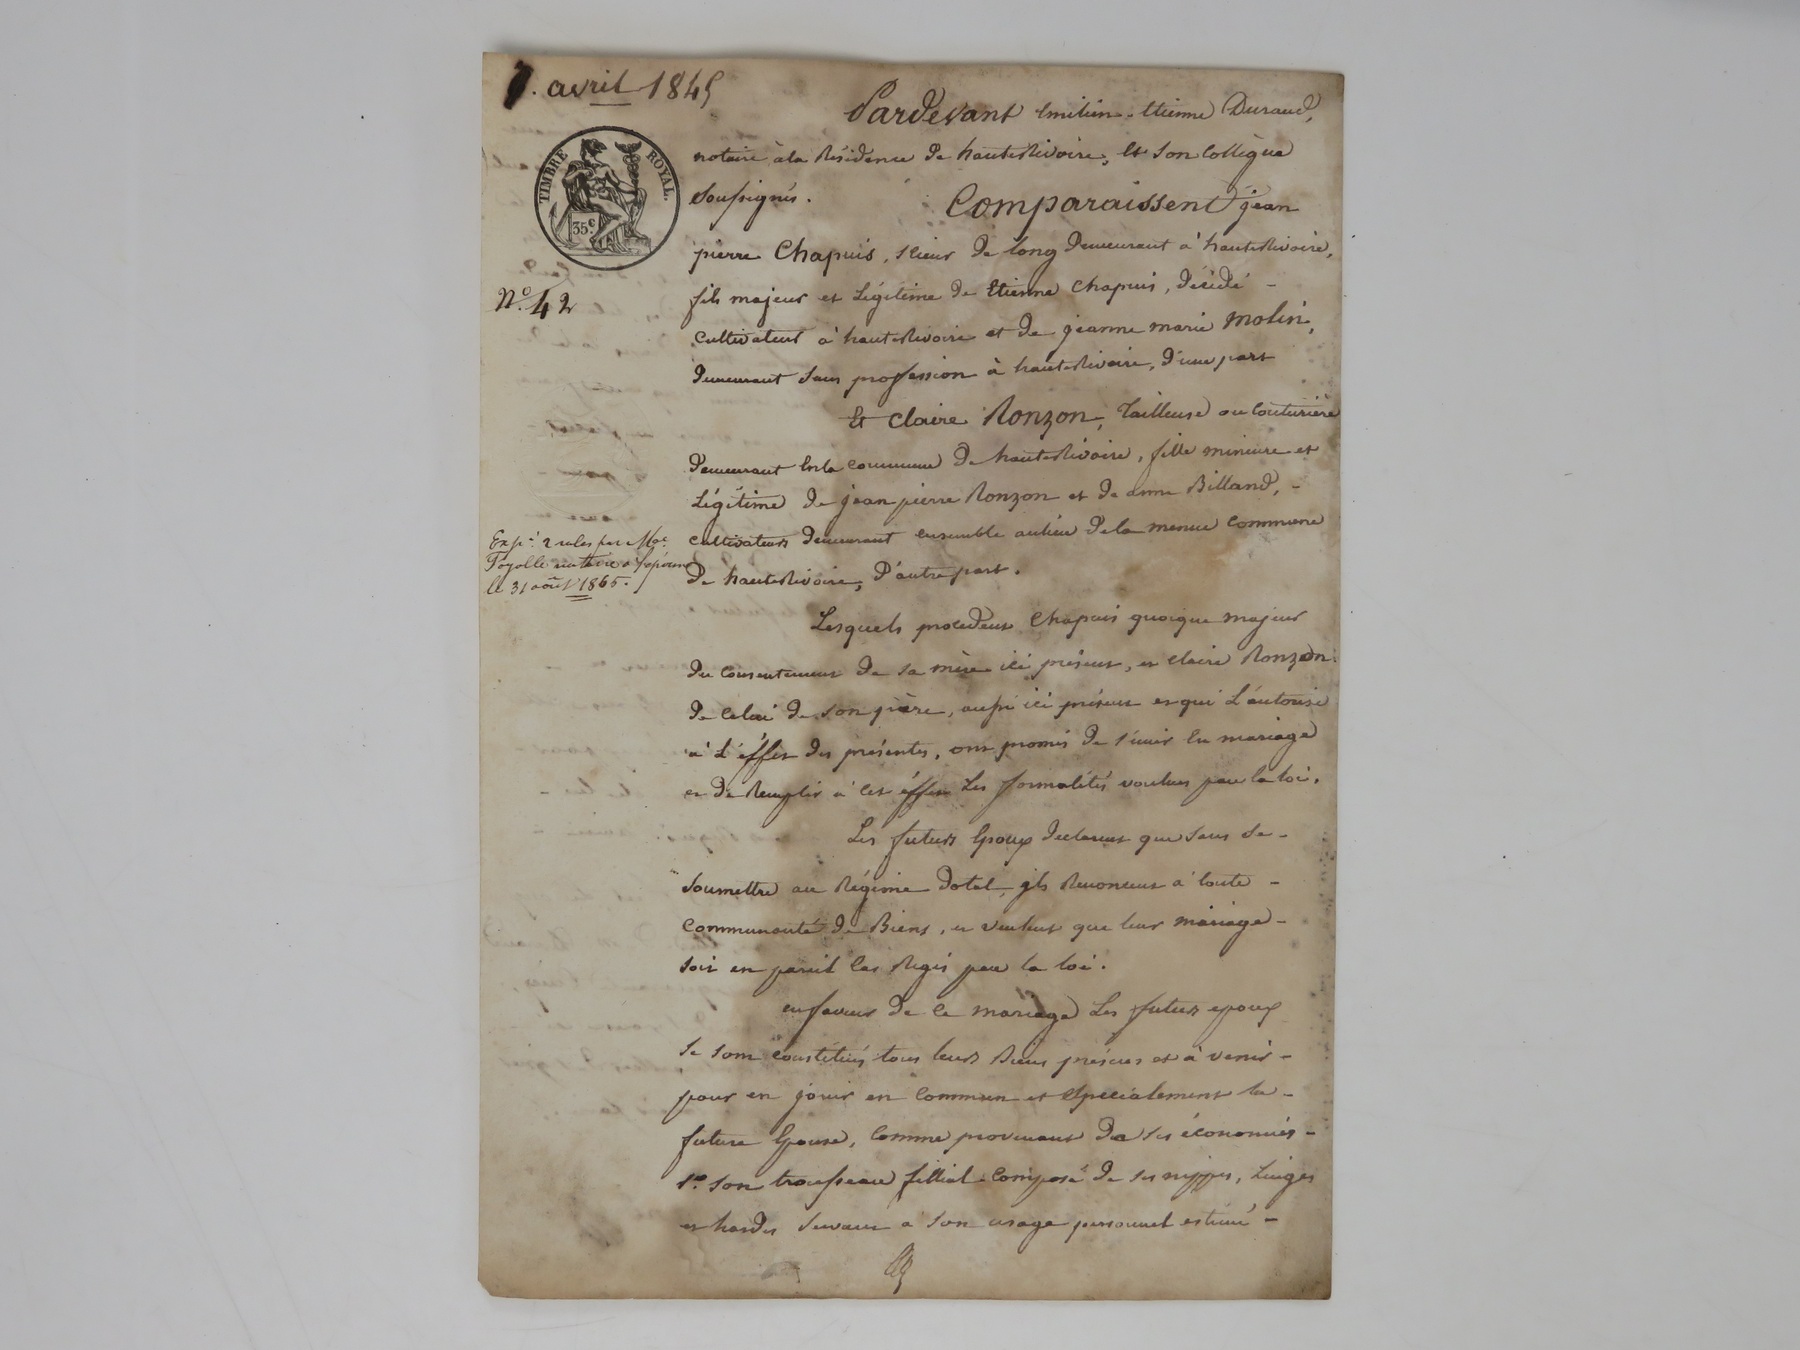 7. avril 1845
TIMBRE ROYAL.
35 c.
N.º 42
Exp.é 2 roles par Me.
Fayolle notaire à
le 31 août 1865.
Pardevant Emilien-Etienne Durand,
notaire à la Résidence de hauteRivoire, Et Son Collègue
Soussignés. Comparaissent jean
pierre Chapuis, scieur de long demeurant à hauteRivoire,
fils majeur et Légitime de Etienne Chapuis, décédé -
cultivateur à hauteRivoire et de jeanne marie Molin,
demeurant sans profession à hauteRivoire, d'une part
Et Claire Ronzon, Tailleuse ou Couturière
demeurant En la commune de hauteRivoire, fille mineure et
Légitime de jean pierre Ronzon et de anne Billand, -
cultivateurs demeurant ensemble au lieu de la menue commune
de hauteRivoire, d'autre part.
Lesquels procedent Chapuis quoique majeur
du consentement de sa mère ici présent, et Claire Ronzon
de Celui de son père, aussi ici présent et qui L'autorise
à L'éffet des présentes, ont promis de s'unir En mariage
et de Remplir à Cet éffet Les formalités voulues par la loi.
Les futurs Epoux declarent que sans se -
soumettre au Régime Dotal, ils Renoncent à toute -
communauté de Biens, et veulent que leur mariage -
soit en pareil Cas Régis par la loi.
en faveur de Ce mariage Les futurs epoux
se sont constitués tous leurs Biens présens et à venir -
pour en jouir en Commun et Specialement la -
future Epouse, Comme provenant de ses économies -
1.º Son trousseau fillial Composé de ses nippes, Linges
et hardes servant à Son usage personnel estimé -